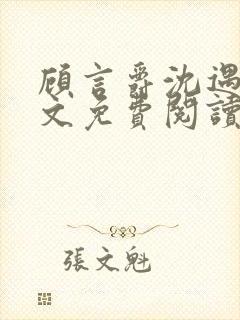 顾言爵沈遇
文免费阅读
张文魁